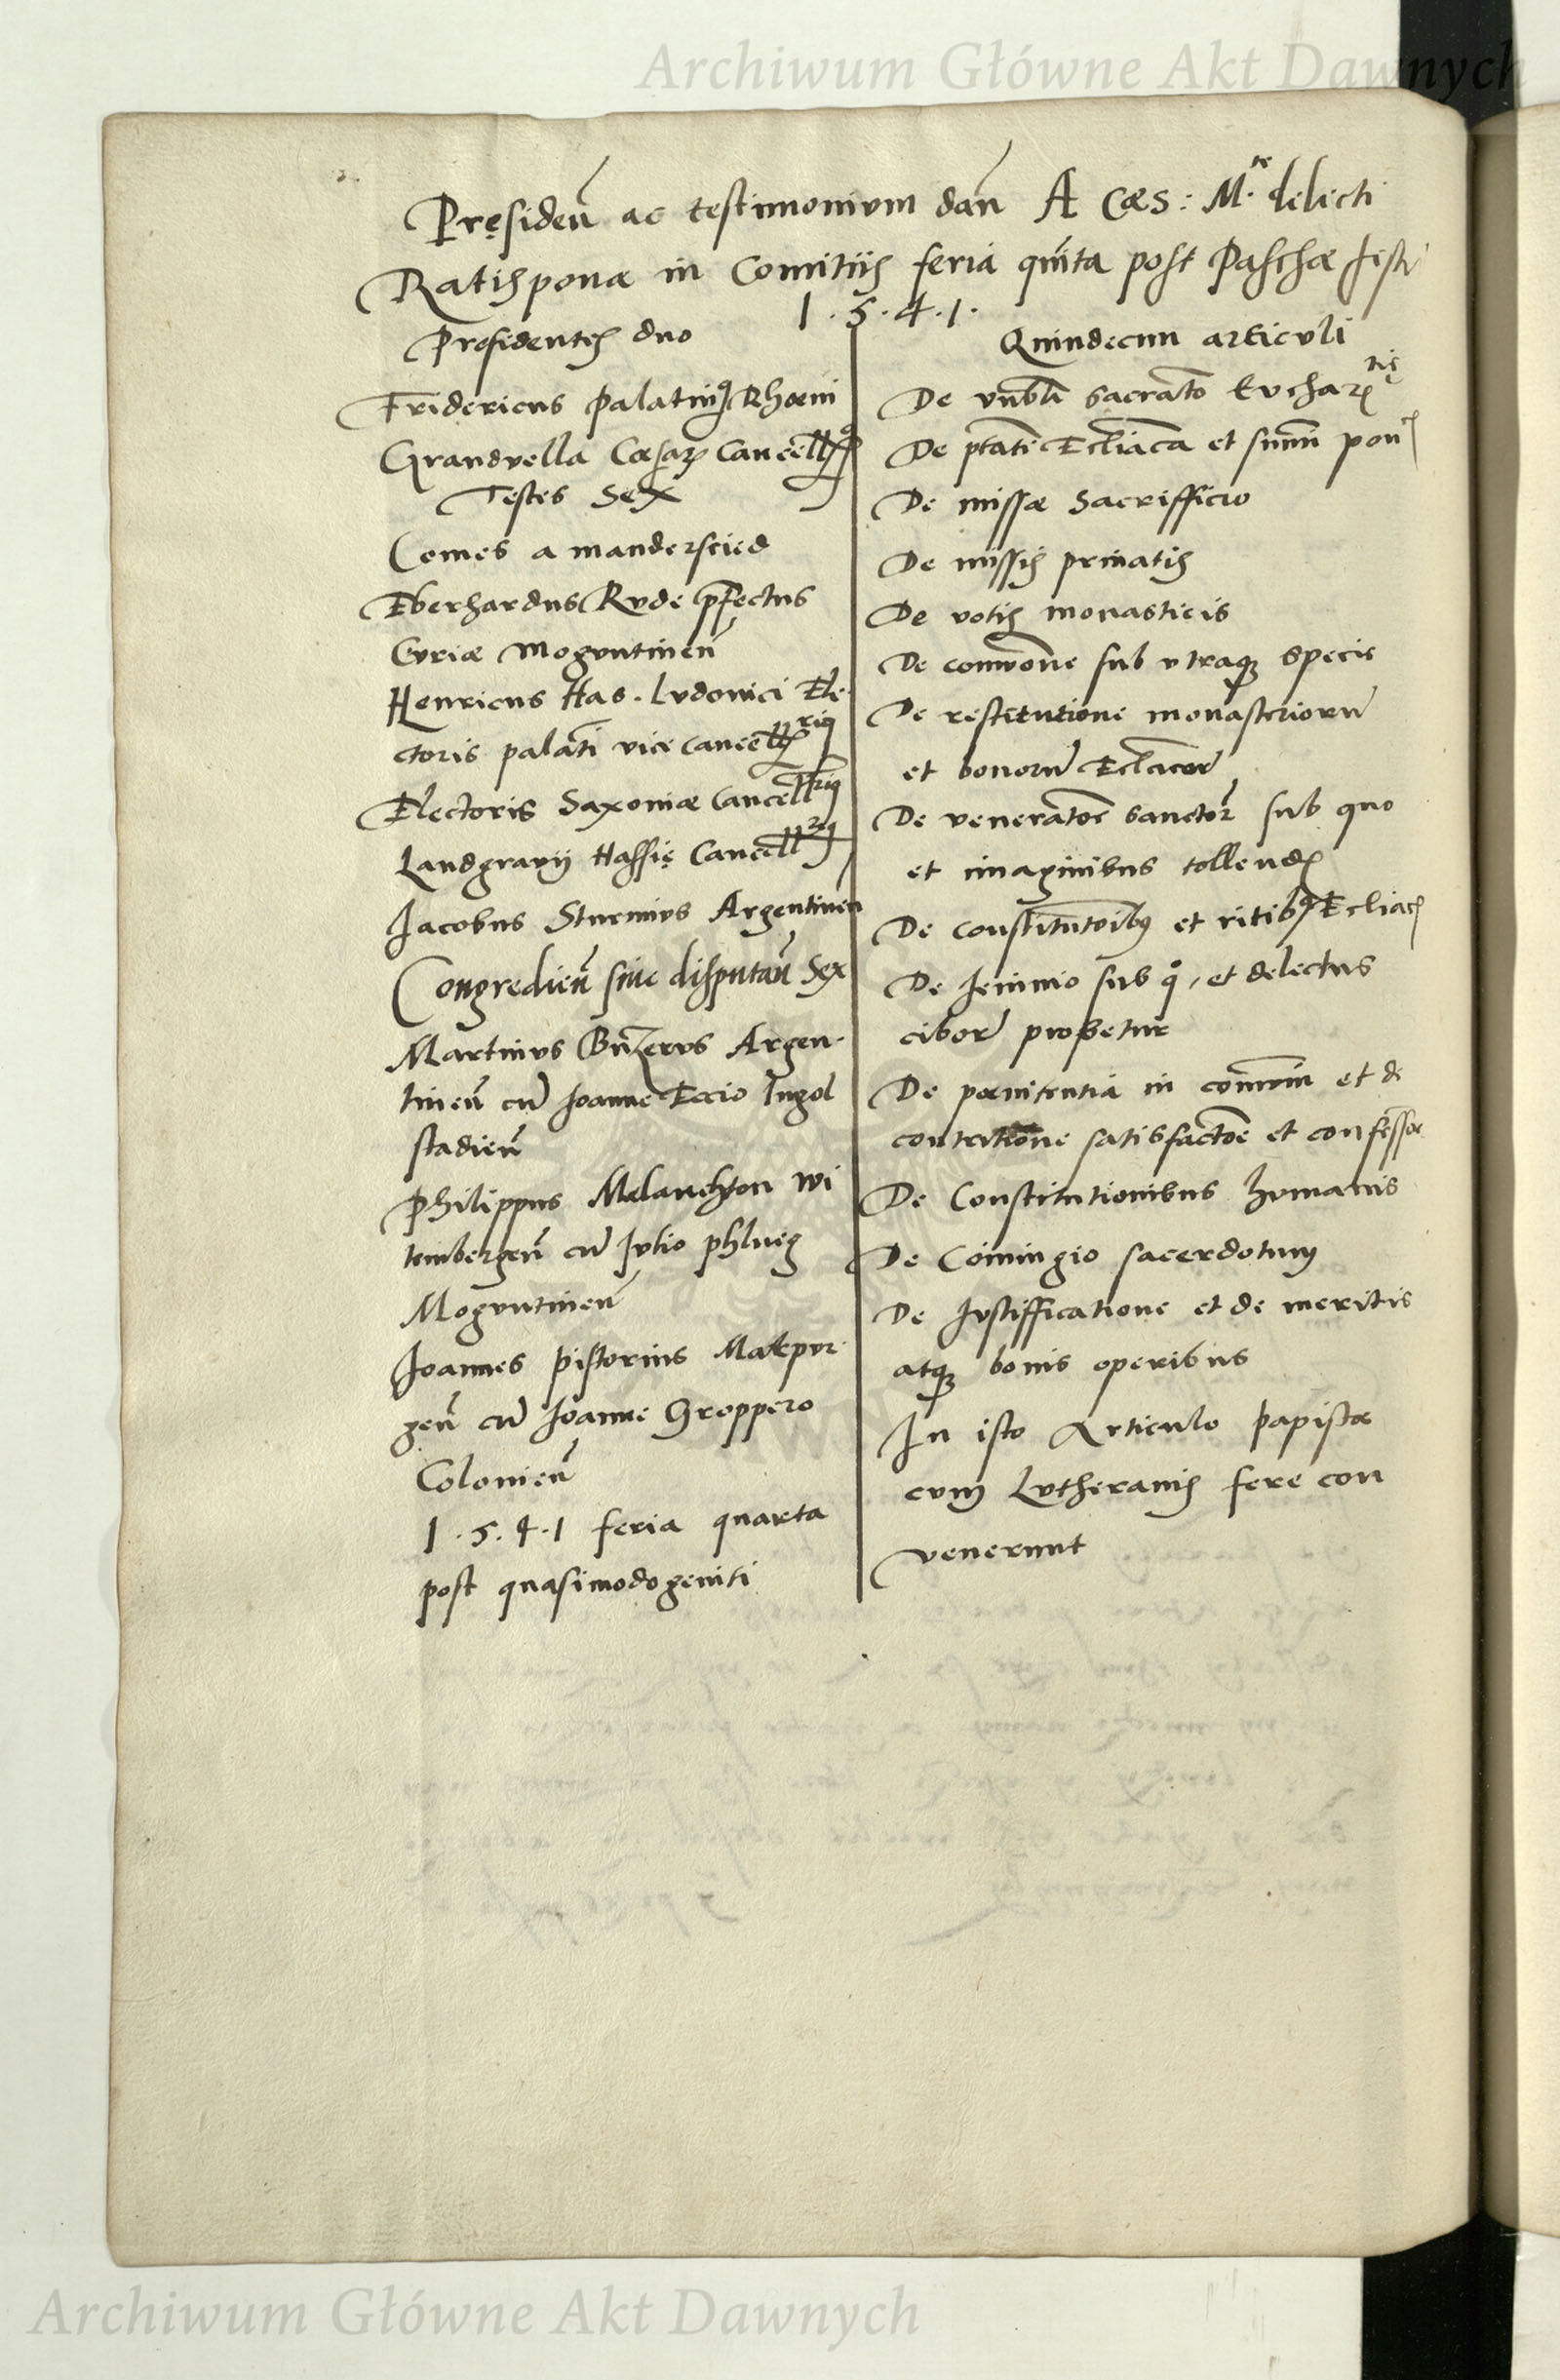 Archiwum Główne Akt Dawnych
Pręsideñ ac testimonivm dañ A Cæs: M.te delecti
Ratisponæ in Comitiis feria qũita post Paschæ festũ
1.5.4.1.
Presidentes duo
Fridericus palatinꝰ Rhœni
Grandvella Cæsar Cancellꝰ
Testes Sex
Comes a manderscied
Eberhardus Rvde p̃fectus
Curiæ Mogvntineñ
Henricus Has. Lvdovici Ele-
ctoris palatĩ vice cancell riꝰ
Electoris Saxoniæ Cancell riꝰ
Landgravij Hassię Cancell riꝰ
Jacobus Sturmivs Argentineñ
Congredieñ siue disputañ Sex
Martinvs Buzervs Argen-
tineñ cũ Joanne Eccio Ingol
stadieñ
Philippus Melanchton Wi
tembergeñ cũ Jvlio phlueg
Mogvntineñ
Joannes pistorius Marpur-
geñ cũ Joanne Groppero
Colonieñ
1.5.4.1 feria quarta
post quasimodogeniti
Quindecim articvli
De vñbli sacrato Euchar tię
De ptate Eccliaca et summ pon
De missæ Sacrifficio
De missis priuatis
De votis monasticis
De comunione sub vtraqꝫ specie
De restitutione monasteriorũ
et bonorũ Ecclacorũ
De veneratoe sanctor sub quo
et imaginibus tollend
De constitutoibꝰ et ritibꝰ Ecliac
De Jeiunio sub q°, et delectus
cibor probetur
De pœnitentia in comuni et de
contritione satisfactoe et confessoe
De Constitutionibus humanis
De Coniugio sacerdotum
De Ivstifficatione et de meritis
atqꝫ bonis operibus
In isto Articulo papistæ
cum Lvtheranis fere con
venerunt
Archiwum Główne Akt Dawnych